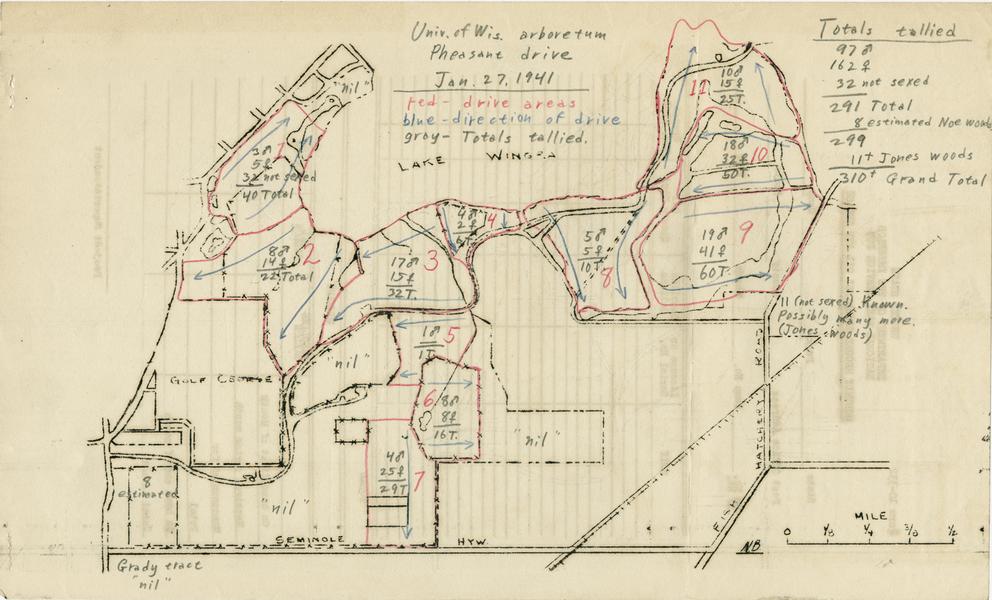 Univ. of Wis. arboretum
Pheasant drive
Jan. 27, 1941
red - drive areas
blue - direction of drive
gray - Totals tallied.
Totals tallied
97♂
162♀
32 not sexed
291 Total
8 estimated Noe woods
299
11+ Jones woods
310+ Grand Total
LAKE WINGRA
"nil"
1
3♂
5♀
32 not sexed
40 Total
2
8♂
14♀
22 Total
3
17♂
15♀
32T.
4
4♂
2♀
6T.
5
1♂
1T.
6
8♂
8♀
16T.
7
4♂
25♀
29T
8
5♂
5♀
10T.
9
19♂
41♀
60T.
10
18♂
32♀
50T.
11
10♂
15♀
25T.
11 (not sexed) Known.
Possibly many more.
(Jones woods)
"nil"
"nil"
"nil"
GOLF COURSE
8
estimated
Grady tract
"nil"
SEMINOLE HYW.
FISH HATCHERY ROAD
NB
MILE
0 1/8 1/4 3/8 1/2